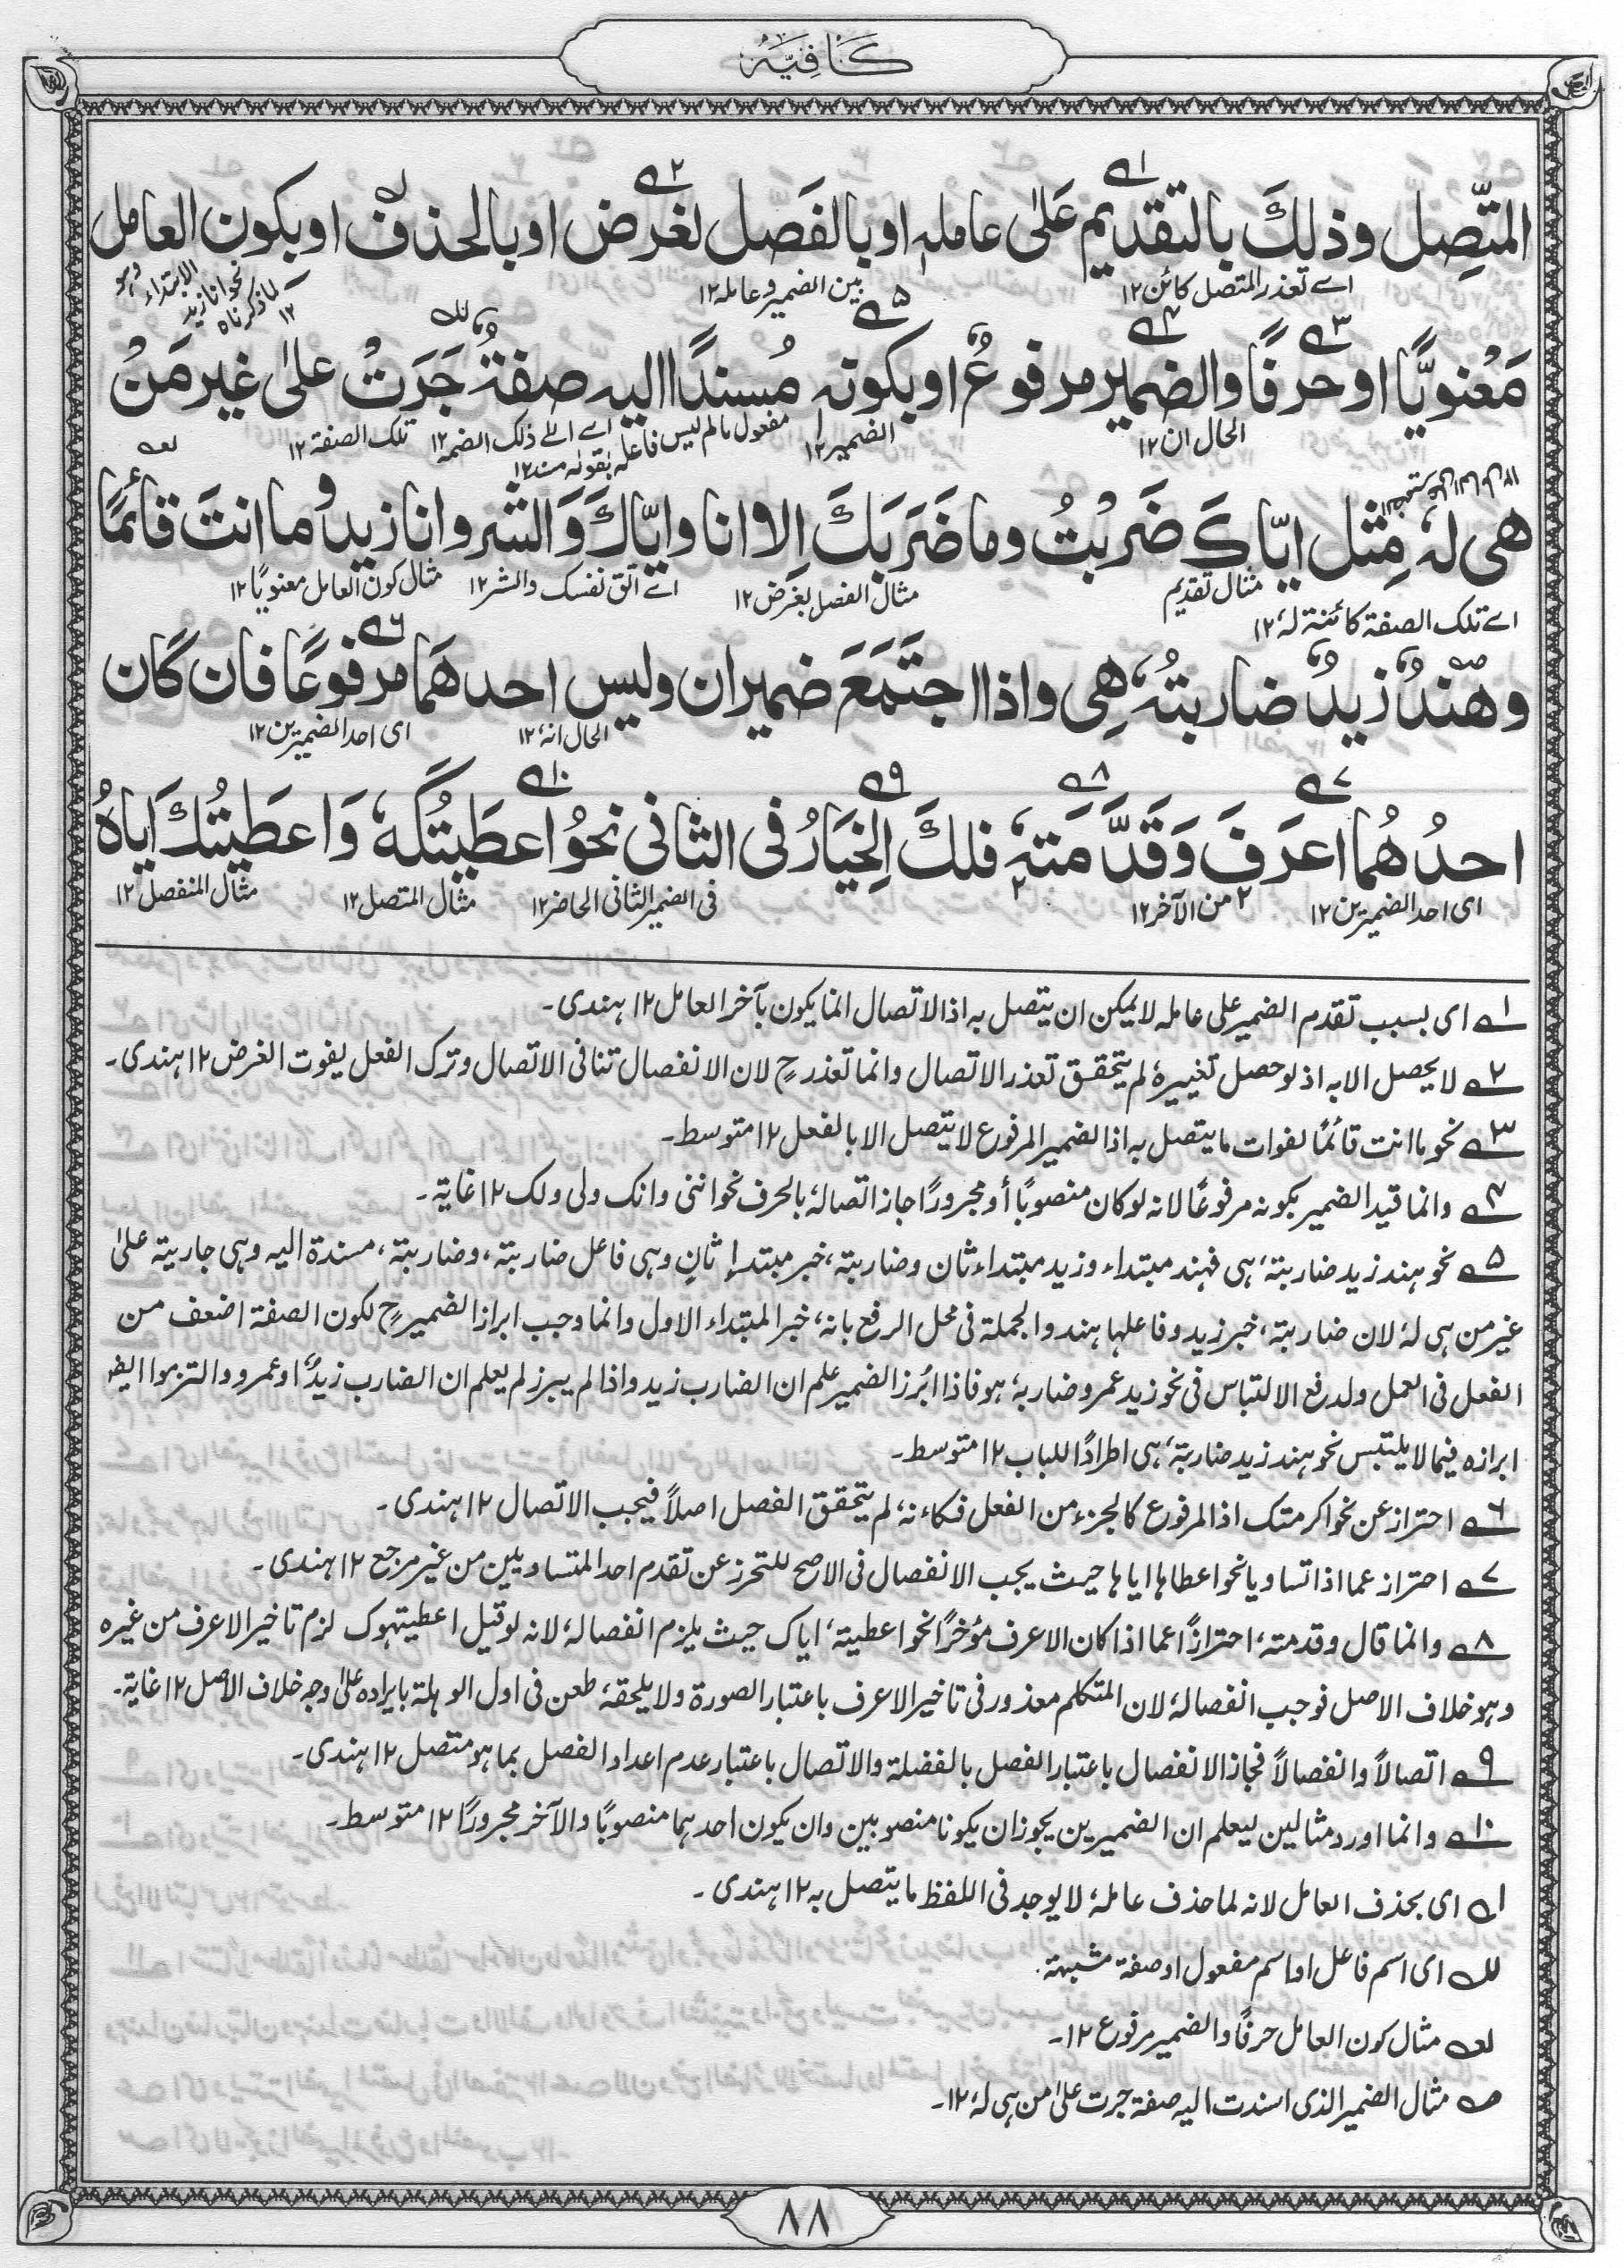 كافيه
المتّصِل وذلكَ بالتقديم عَلىٰ عامله اوبالفَصل لغرض اوبالحذف اوبكون العامل
اے تعذر المتصل كائن ١٢ بين الضمير وعامله ١٢ كما ذكرناه نحو انا زيد ١٢ الابتداء وهو
مَعْنويًّا اوحرفًا والضمير مرفوعٌ اوبكونه مُسندًا اليه صفةٌ جَرَتْ علىٰ غير مَنْ
الحال ان ١٢ الضمير ١٢ مفعول مالم يسم فاعله اے الى ذلك الضمير ١٢ تلك الصفة ١٢
هى لهٗ مِثل ايّاكَ ضَرَبْتُ وما ضَرَبَكَ اِلا انا وايّاكَ وَالشر وانا زيدٌ وما انتَ قائمًا
اے تلك الصفة كائنة لهٗ ١٢ مثال تقديم مثال الفصل بغرض ١٢ اے اتق نفسك والشر ١٢ مثال كون العامل معنويًا ١٢
وهندٌ زيدٌ ضاربتُهٗ هِى واذا اجتَمَعَ ضميران وليس احدهَما مرفوعًا فان كان
الحال انهٗ ١٢ اى احد الضميرين ١٢
احدُهُما اعرَفَ وَقَدَّمَتهٗ فلكَ الخيَارُ فى الثانى نحوُ اعطَيتُكَهٗ وَاعطَيتُكَ اياهُ
اى احد الضميرين ١٢ من الآخر ١٢ فى الضمير الثانى الحاضر ١٢ مثال المتصل ١٢ مثال المنفصل ١٢
١ے اى بسبب تقدم الضمير على عامله لا يمكن ان يتصل به اذ الاتصال انما يكون بآخر العامل ١٢ هندى۔
٢ے لا يحصل الا به اذ لو حصل تغييرهٗ لم يتحقق تعذر الاتصال وانما تعذر ح لان الانفصال تنافى الاتصال وترك الفعل يفوت الغرض ١٢ هندى۔
٣ے نحو ما انت قائمًا لفوات ما يتصل به اذ الضمير المرفوع لا يتصل الا بالفعل ١٢ متوسط۔
٤ے وانما قيد الضمير بكونه مرفوعًا لانه لو كان منصوبًا أو مجرورًا جاز اتصالهٗ بالحرف نحو اننى وانك ولى ولك ١٢ غاية۔
٥ے نحو هند زيد ضاربتهٗ هى فهند مبتداء وزيد مبتداء ثان وضاربتهٗ خبر مبتدإ ثانٍ وهى فاعل ضاربتهٗ، وضاربتهٗ، مسندة اليه وهى جارية علىٰ
غير من هى لهٗ لان ضاربتهٗ خبر زيد وفاعلها هند والجملة فى محل الرفع بانهٗ خبر المبتداء الاول وانما وجب ابراز الضمير ح لكون الصفة اضعف من
الفعل فى العمل ولدفع الالتباس فى نحو زيد عمرو ضاربهٗ هو فاذا ابرز الضمير علم ان الضارب زيد واذا لم يبرز لم يعلم ان الضارب زيدٌ او عمرو والتزموا ايضا
ابرازه فيما لا يلتبس نحو هند زيد ضاربتهٗ هى اطرادًا للباب ١٢ متوسط۔
٦ے احتراز عن نحو اكرمتك اذ المرفوع كالجزء من الفعل فكانهٗ لم يتحقق الفصل اصلاً فيجب الاتصال ١٢ هندى۔
٧ے احتراز عما اذا تساويا نحو اعطاها اياها حيث يجب الانفصال فى الاصح للتحرز عن تقدم احد المتساويين من غير مرجع ١٢ هندى۔
٨ے وانما قال وقدمتهٗ احترازًا عما اذا كان الاعرف مؤخرًا نحو اعطيتهٗ اياك حيث يلزم انفصالهٗ لانه لو قيل اعطيتهوك لزم تاخير الاعرف من غيره
وهو خلاف الاصل فوجب انفصالهٗ لان المتكلم معذور فى تاخير الاعرف باعتبار الصورة ولا يلحقهٗ طعن فى اول الوهلة بايراده علىٰ وجه خلاف الاصل ١٢ غاية۔
٩ے اتصالاً وانفصالاً فجاز الانفصال باعتبار الفصل بالفضلة والاتصال باعتبار عدم اعداد الفصل بما هو متصل ١٢ هندى۔
١٠ے وانما اورد مثالين ليعلم ان الضميرين يجوز ان يكونا منصوبين وان يكون احدهما منصوبًا والآخر مجرورًا ١٢ متوسط۔
اى بحذف العامل لانه لما حذف عاملهٗ لا يوجد فى اللفظ ما يتصل به ١٢ هندى۔
اى اسم فاعل او اسم مفعول او صفة مشبهة.
مثال كون العامل حرفًا والضمير مرفوع ١٢۔
مثال الضمير الذى اسندت اليه صفة جرت علىٰ من هى لهٗ ١٢۔
٨٨